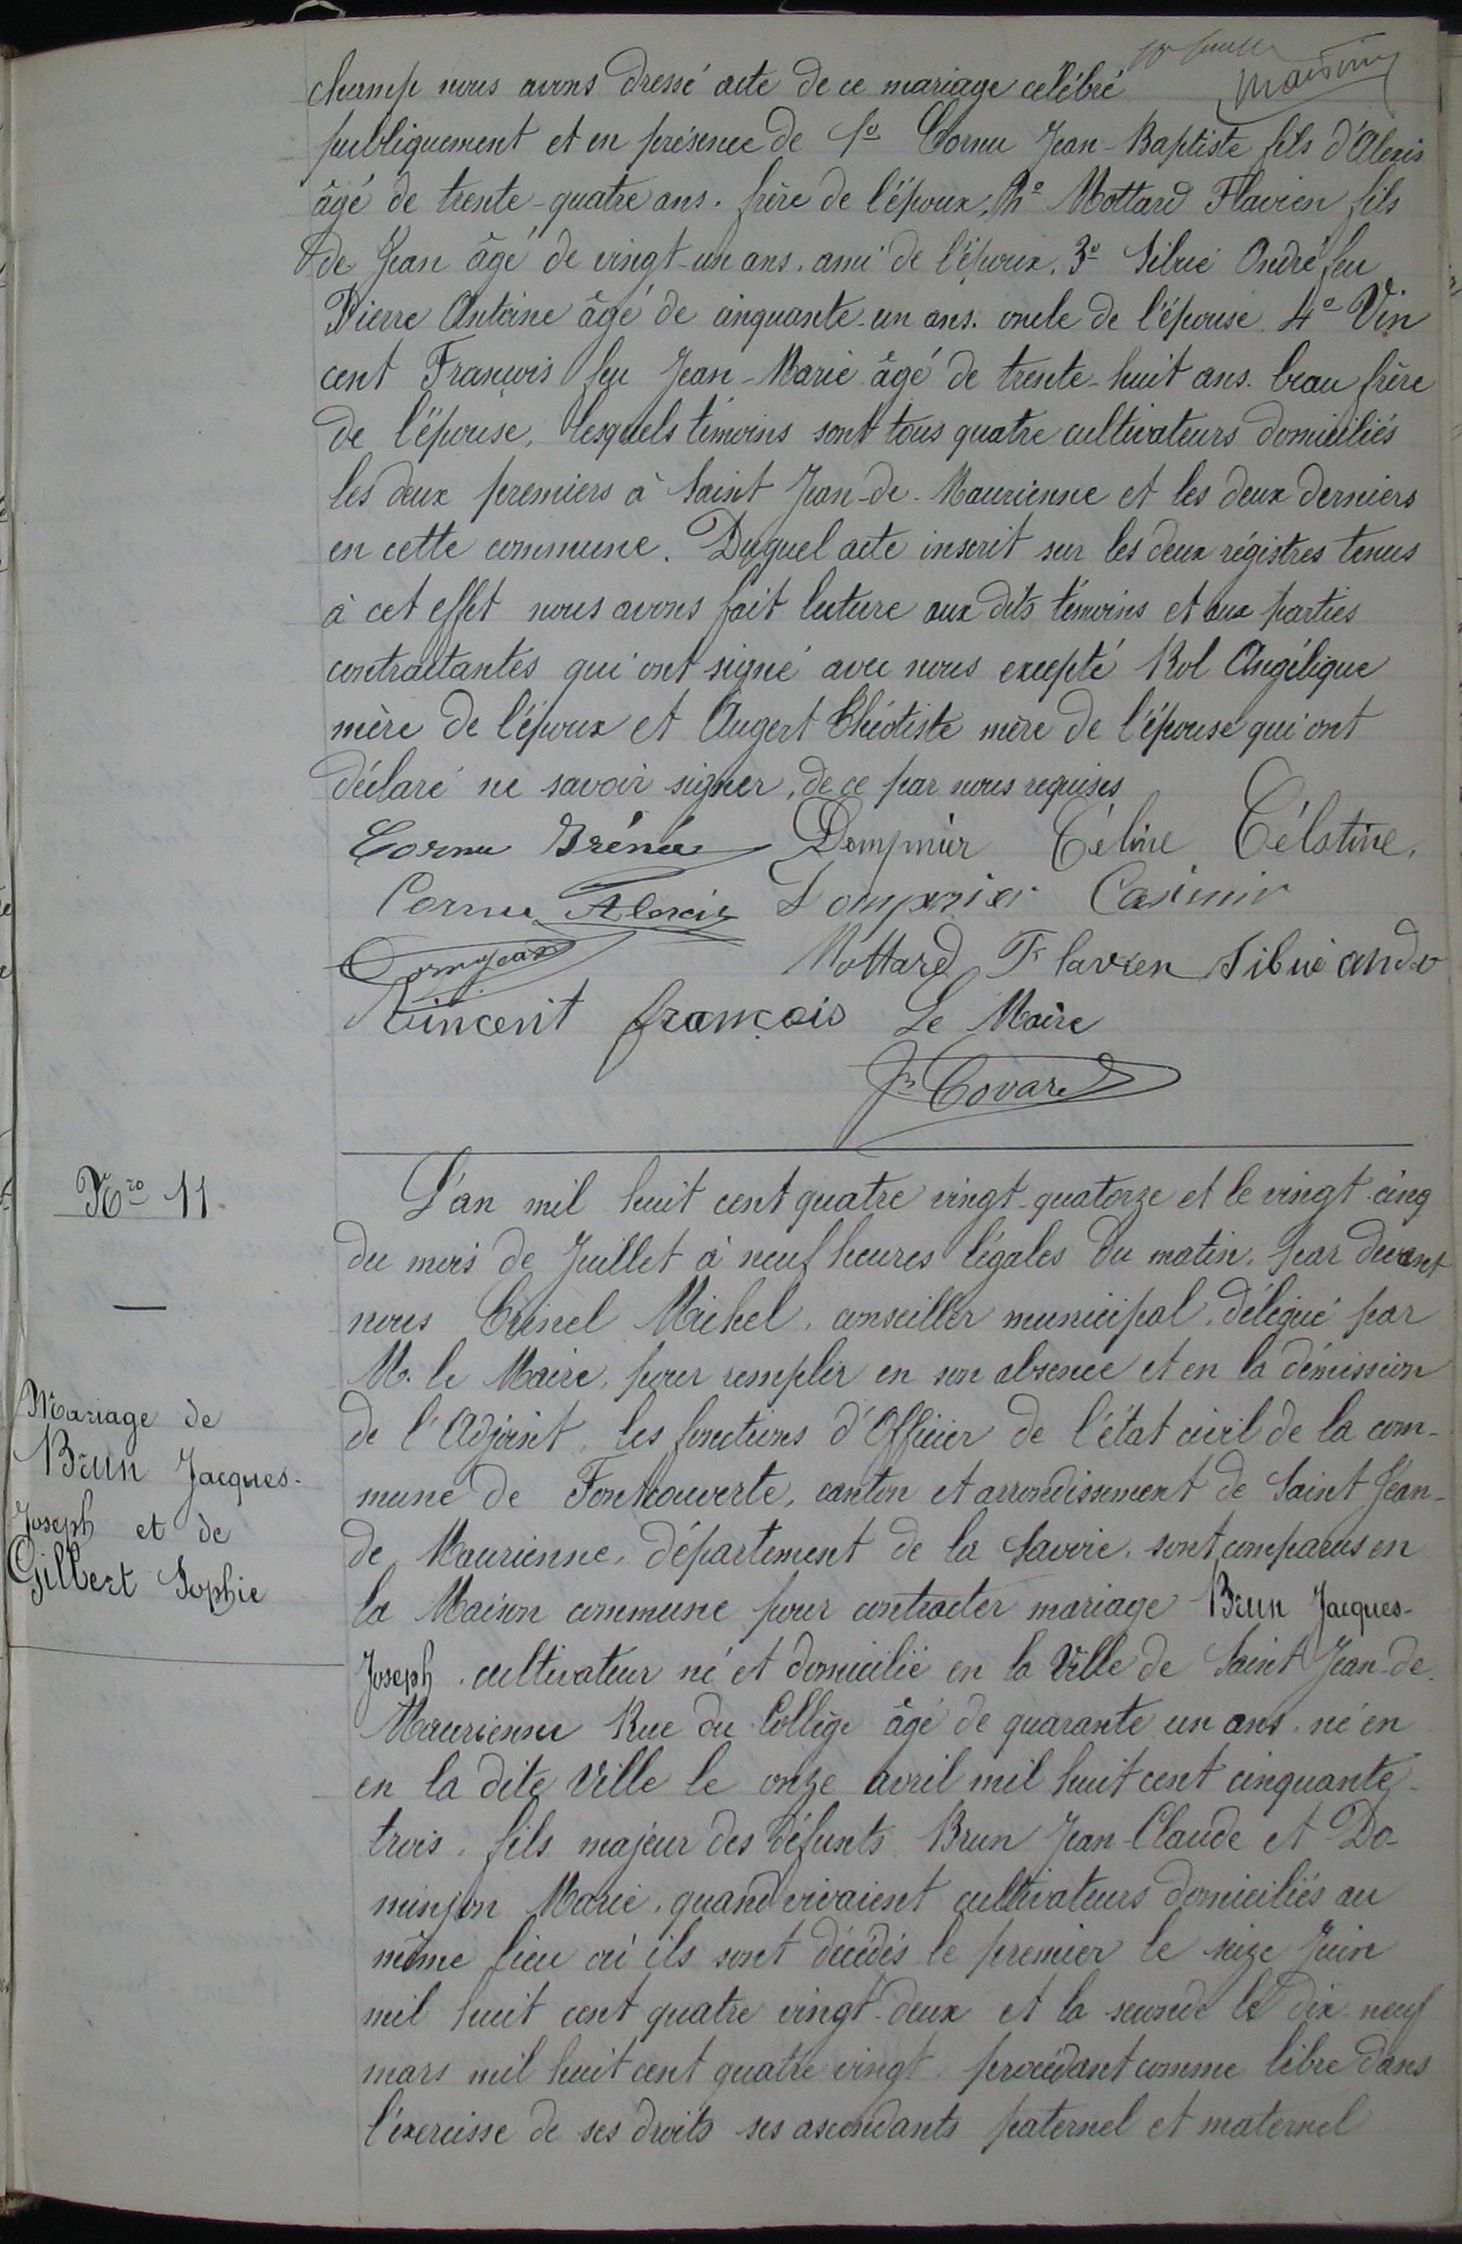 champ nous avons dressé acte de ce mariage célébré
publiquement et en présence de 1o Cornu Jean-Baptiste fils d'Alexis
âgé de trente-quatre ans. frère de l'époux, 2o Mottard Flavien fils
de Jean âgé de vingt-un ans. ami de l'époux. 3o Sibué André feu
Pierre Antoine âgé de cinquante-un ans. oncle de l'épouse 4o Vin
cent François feu Jean-Marie âgé de trente-huit ans. beau frère
de l'épouse, lesquels témoins sont tous quatre cultivateurs domiciliés
les deux premiers à Saint Jean-de-Maurienne et les deux derniers
en cette commune. Duquel acte inscrit sur les deux régistres tenus
à cet effet nous avons fait lecture aux dits témoins et aux parties
contractantes qui ont signé avec nous excepté Rol Angélique
mère de l'époux et Augert Théotiste mère de l'épouse qui ont
déclaré ne savoir signer, de ce par nous requises
Cornu Irénée Dompnier Céline Célstine,
Cornu Alexis Dompnier Casimir
Mottard Flavien Sibué andré
Vincent françois Le Maire
Jh Covarel
Nro 11.
Mariage de
Brun Jacques-
Joseph et de
Gilbert Sophie
L'an mil huit cent quatre vingt-quatorze et le vingt-cinq
du mois de Juillet à neuf heures légales du matin, par devant
nous Crinel Michel, conseiller municipal, délégué par
M. le Maire, pour remplir en son absence et en la démission
de l'Adjoint, les fonctions d'Officier de l'état civil de la com-
mune de Fontcouverte, canton et arrondissement de Saint Jean-
de Maurienne, département de la Savoie, sont comparus en
la Maison commune pour contracter mariage Brun Jacques-
Joseph, cultivateur né et domicilié en la Ville de Saint Jean-de-
Maurienne Rue du Collège âgé de quarante un ans, né en
en la dite Ville le onze avril mil huit cent cinquante-
trois, fils majeur des défunts Brun Jean-Claude et Do-
minjon Marie, quand vivaient cultivateurs domiciliés au
même lieu où ils sont décédés le premier le seize Juin
mil huit cent quatre vingt-deux et la seconde le dix neuf
mars mil huit cent quatre vingt, procédant comme libre dans
l'exercisse de ses droits ses ascendants paternel et maternel